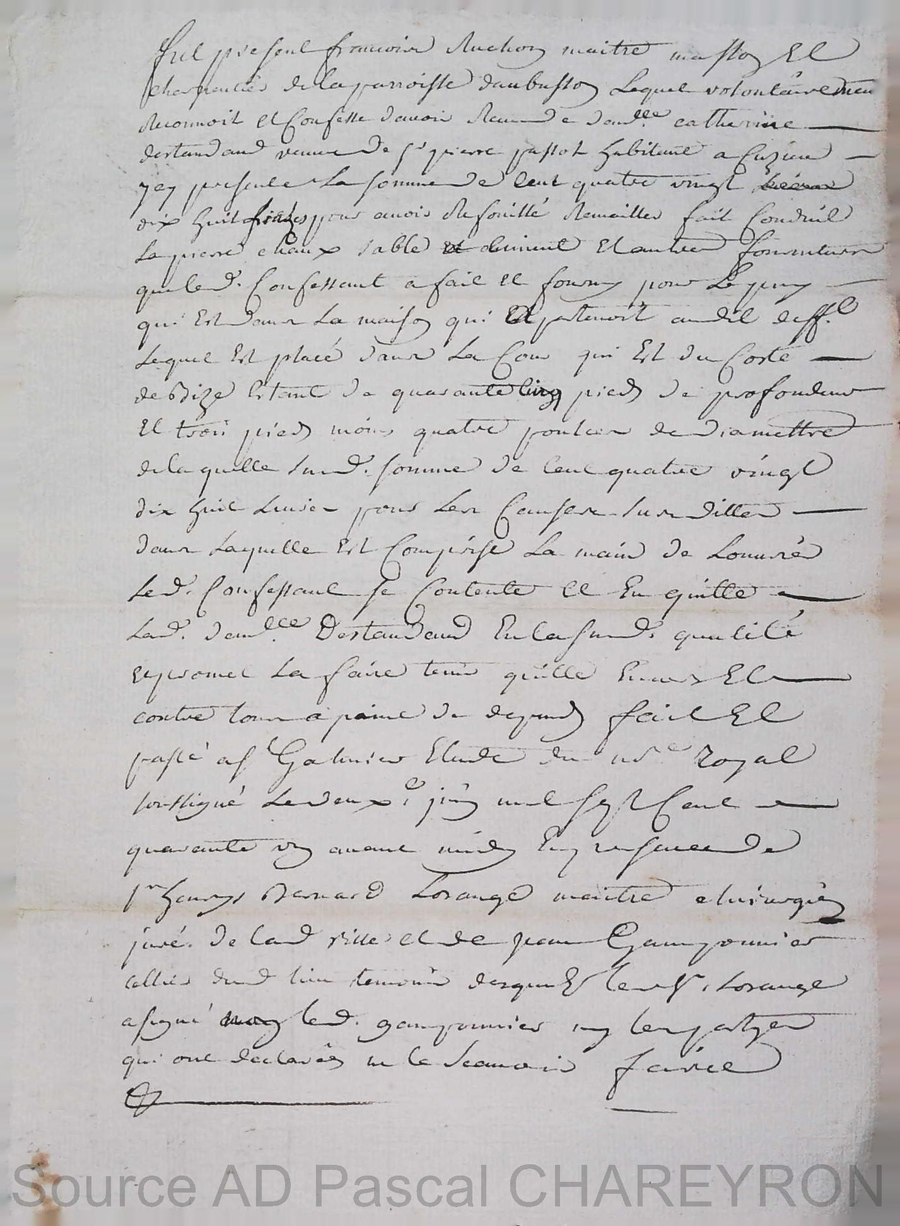 fut present francois Ruchon maitre masson Et
charpentier de la parroisse daubusson Lequel volontairemen
Reconnoit et Confesse davoir Receu de dam.lle catherine
destandaud veuve de Sr pierre passot habitant a Cuzieu
yey presente La somme de Cent quatre vingt
dix huit livres pour avoir Refouillé Remailler fait Conduit
La pierre chaux sable et ciment Et autre fourniture
que led. Confessant a fait Et fourny pour Le puy
qui Est dans La maison qui Apartenoit audit deff.t
Lequel Est placé dans La Cour qui Est du Costé
de Bize Estant de quarante cinq pieds de profondeur
Et trois pieds moins quatre poulces de diamettre
de laquelle susd. somme de Cent quatre vingt
dix huit Livres pour Les Causes susdittes
dans Laquelle Est Comprise La main de Louuvrés
Led. Confessant se Contente Et En quitte
Lad. dam.lle Destandaud En la susd. qualité
et promet La faire tenir quitte Envers Et
contre tous a paine de depends fait Et
passé a St Galmier Etude du no.re Royal
soussigné Le deux e juin mil Sept Cent
quarante un avant midy En presence de
Sr Henrys Bernard Lorange maitre chirurgien
juré de lad ville et de jean Gamponnier
cellier dud lieu temoins desquels le Sr Lorange
a signé non led. gamponnier ny les partyes
qui ont declarés ne le Scavoir faire